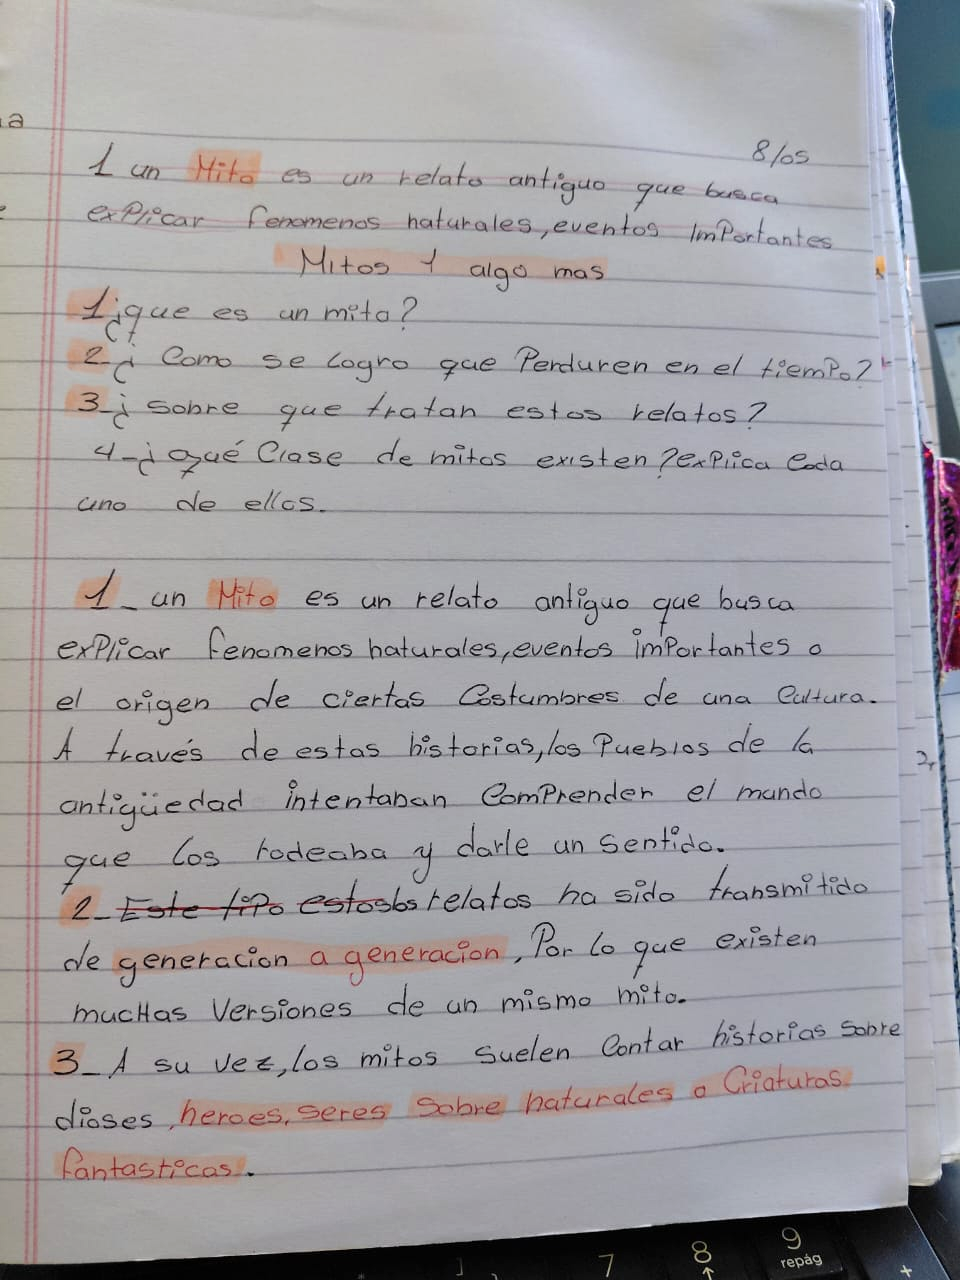 a
8/05
1 un Mito es un relato antiguo que busca
explicar fenomenos naturales, eventos importantes
Mitos Y algo mas
1¿que es un mito?
2¿ Como se logro que Perduren en el tiempo?
3-¿ sobre que tratan estos relatos?
4-¿ qué Clase de mitos existen? explica Cada
uno de ellos.
1_ un Mito es un relato antiguo que busca
explicar fenomenos naturales, eventos importantes o
el origen de ciertas Costumbres de una Cultura.
A través de estas historias, los Pueblos de la
antigüedad intentaban Comprender el mundo
que los rodeaba y darle un sentido.
2_ Este tipo estos relatos ha sido transmitido
de generacion a generacion, Por lo que existen
mucHas Versiones de un mismo mito.
3_ A su vez, los mitos suelen Contar historias sobre
dioses, heroes, seres sobre naturales o Criaturas
fantasticas.
7 8 9
repág
+